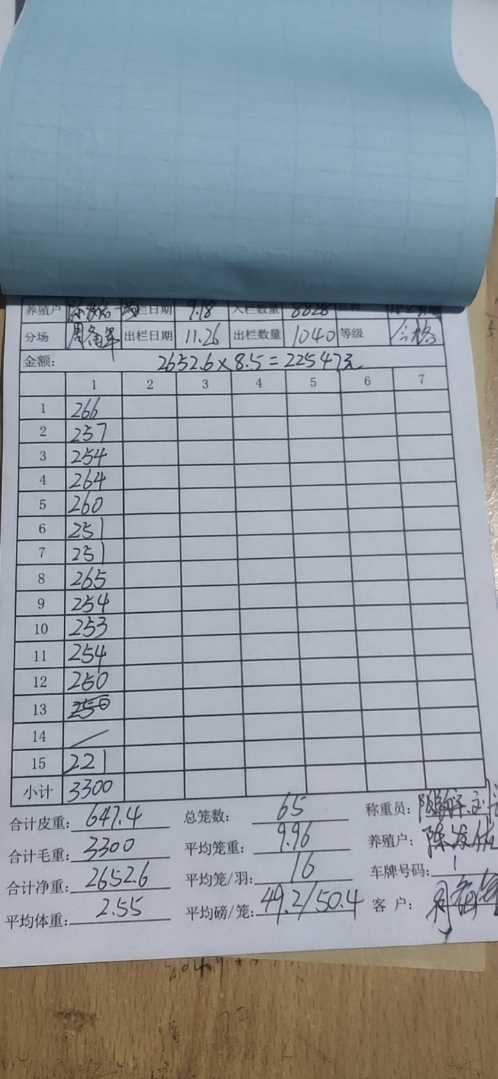 养殖户 栏日期 9.18 入栏数量 8828
分场 出栏日期 11.26 出栏数量 1040 等级 合格
金额: 2652.6×8.5=22547元
1 2 3 4 5 6 7
1 266
2 257
3 254
4 264
5 260
6 251
7 251
8 265
9 254
10 253
11 254
12 250
13 250
14 /
15 221
小计 3300
合计皮重: 647.4 总笼数: 65 称重员:
合计毛重: 3300 平均笼重: 9.96 养殖户: 陈发
合计净重: 2652.6 平均笼/羽: 16 车牌号码: 1
平均体重: 2.55 平均磅/笼: 49.2/50.4 客 户: